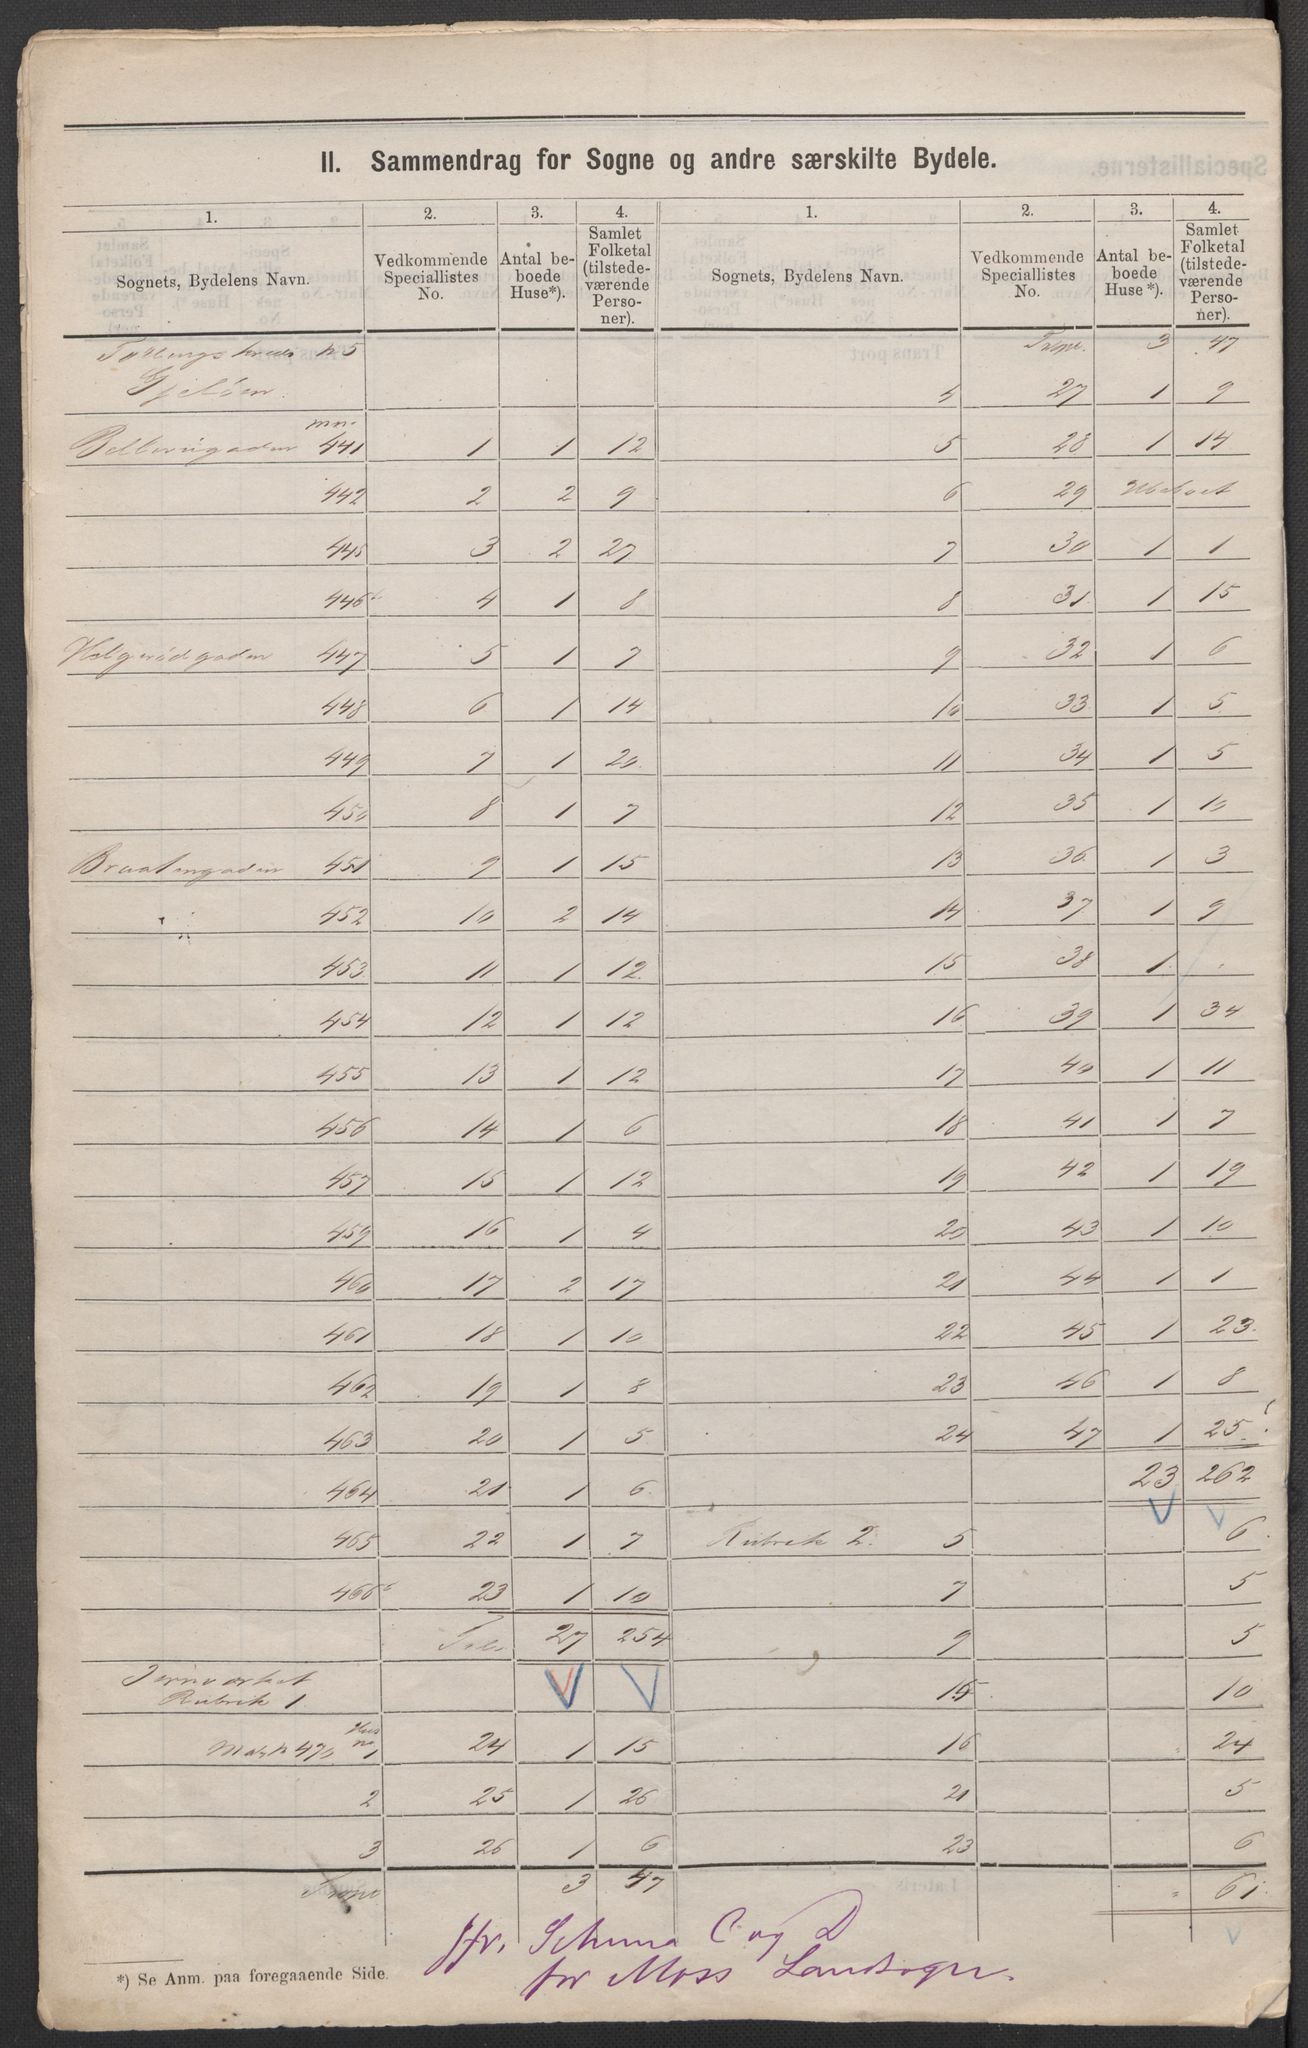 II. Sammendrag for Sogne og andre særskilte Bydele.
1. 2. 3. 4. 1. 2. 3. 4.
Sognets, Bydelens Navn. Vedkommende Speciallistes No. Antal beboede Huse*). Samlet Folketal (tilstedeværende Personer). Sognets, Bydelens Navn. Vedkommende Speciallistes No. Antal beboede Huse*). Samlet Folketal (tilstedeværende Personer).
Tællingskreds No 5 Trspt. 3 47
Gjelöen. 4 27 1 9
mno.
441 1 1 12 5 28 1 14
442 2 2 9 6 29 Ubeboet
445 3 2 27 7 30 1 1
446b 4 1 8 8 31 1 15
Helgerödgaden 447 5 1 7 9 32 1 6
448 6 1 14 10 33 1 5
449 7 1 20 11 34 1 5
450 8 1 7 12 35 1 10
Braatengaden 451 9 1 15 13 36 1 3
452 10 2 14 14 37 1 9
453 11 1 12 15 38 1 .
454 12 1 12 16 39 1 34
455 13 1 12 17 40 1 11
456 14 1 6 18 41 1 7
457 15 1 12 19 42 1 19
459 16 1 4 20 43 1 10
460 17 2 17 21 44 1 1
461 18 1 10 22 45 1 23
462 19 1 8 23 46 1 8
463 20 1 5 24 47 1 25
464 21 1 6 23 262
465 22 1 7 Rubrik 2. 5 6
466b 23 1 10 7 5
27 254 9 5
Jernværket
Rubrik 1. 15 10
Hus
Mat. No 470 no 1 24 1 15 16 24
2 25 1 26 21 5
3 26 1 6 23 6
3 47 61
*) Se Anm. paa foregaaende Side.
jfr. Schema C og D
for Moss Landsogn.